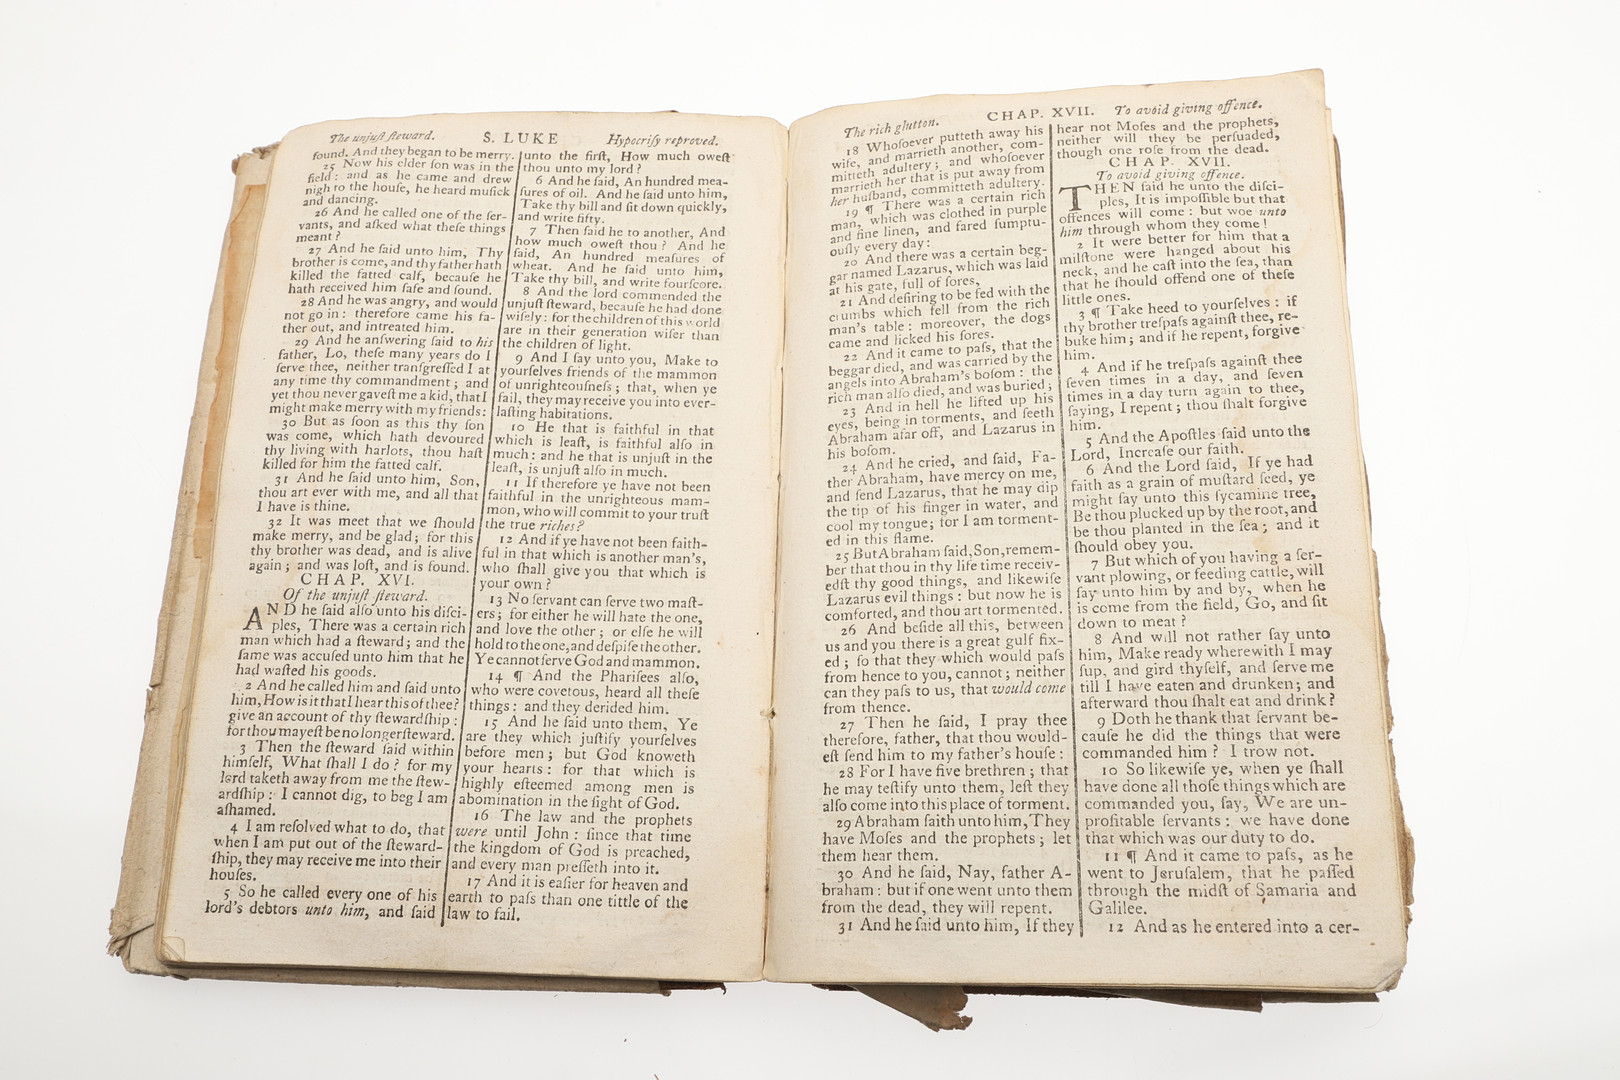 The unjuſt ſteward.
S. LUKE
Hypocriſy reproved.
found. And they began to be merry.
25 Now his elder ſon was in the
field: and as he came and drew
nigh to the houſe, he heard muſick
and dancing.
26 And he called one of the ſer-
vants, and aſked what theſe things
meant?
27 And he ſaid unto him, Thy
brother is come, and thy father hath
killed the fatted calf, becauſe he
hath received him ſafe and ſound.
28 And he was angry, and would
not go in: therefore came his fa-
ther out, and intreated him.
29 And he anſwering ſaid to his
father, Lo, theſe many years do I
ſerve thee, neither tranſgreſſed I at
any time thy commandment; and
yet thou never gaveſt me a kid, that I
might make merry with my friends:
30 But as ſoon as this thy ſon
was come, which hath devoured
thy living with harlots, thou haſt
killed for him the fatted calf.
31 And he ſaid unto him, Son,
thou art ever with me, and all that
I have is thine.
32 It was meet that we ſhould
make merry, and be glad; for this
thy brother was dead, and is alive
again; and was loſt, and is found.
CHAP. XVI.
Of the unjuſt ſteward.
AND he ſaid alſo unto his diſci-
ples, There was a certain rich
man which had a ſteward; and the
ſame was accuſed unto him that he
had waſted his goods.
2 And he called him and ſaid unto
him, How is it that I hear this of thee?
give an account of thy ſtewardſhip:
for thou mayeſt be no longer ſteward.
3 Then the ſteward ſaid within
himſelf, What ſhall I do? for my
lord taketh away from me the ſtew-
ardſhip: I cannot dig, to beg I am
aſhamed.
4 I am reſolved what to do, that
when I am put out of the ſteward-
ſhip, they may receive me into their
houſes.
5 So he called every one of his
lord's debtors unto him, and ſaid
unto the firſt, How much oweſt
thou unto my lord?
6 And he ſaid, An hundred mea-
ſures of oil. And he ſaid unto him,
Take thy bill and ſit down quickly,
and write fifty.
7 Then ſaid he to another, And
how much oweſt thou? And he
ſaid, An hundred meaſures of
wheat. And he ſaid unto him,
Take thy bill, and write fourſcore.
8 And the lord commended the
unjuſt ſteward, becauſe he had done
wiſely: for the children of this world
are in their generation wiſer than
the children of light.
9 And I ſay unto you, Make to
yourſelves friends of the mammon
of unrighteouſneſs; that, when ye
fail, they may receive you into ever-
laſting habitations.
10 He that is faithful in that
which is leaſt, is faithful alſo in
much: and he that is unjuſt in the
leaſt, is unjuſt alſo in much.
11 If therefore ye have not been
faithful in the unrighteous mam-
mon, who will commit to your truſt
the true riches?
12 And if ye have not been faith-
ful in that which is another man's,
who ſhall give you that which is
your own?
13 No ſervant can ſerve two maſt-
ers; for either he will hate the one,
and love the other; or elſe he will
hold to the one, and deſpiſe the other.
Ye cannot ſerve God and mammon.
14 ¶ And the Phariſees alſo,
who were covetous, heard all theſe
things: and they derided him.
15 And he ſaid unto them, Ye
are they which juſtify yourſelves
before men; but God knoweth
your hearts: for that which is
highly eſteemed among men is
abomination in the ſight of God.
16 The law and the prophets
were until John: ſince that time
the kingdom of God is preached,
and every man preſſeth into it.
17 And it is eaſier for heaven and
earth to paſs than one tittle of the
law to fail.
The rich glutton.
CHAP. XVII.
To avoid giving offence.
18 Whoſoever putteth away his
wife, and marrieth another, com-
mitteth adultery; and whoſoever
marrieth her that is put away from
her huſband, committeth adultery.
19 ¶ There was a certain rich
man, which was clothed in purple
and fine linen, and fared ſumptu-
ouſly every day:
20 And there was a certain beg-
gar named Lazarus, which was laid
at his gate, full of ſores,
21 And deſiring to be fed with the
crumbs which fell from the rich
man's table: moreover, the dogs
came and licked his ſores.
22 And it came to paſs, that the
beggar died, and was carried by the
angels into Abraham's boſom: the
rich man alſo died, and was buried;
23 And in hell he lifted up his
eyes, being in torments, and ſeeth
Abraham afar off, and Lazarus in
his boſom.
24 And he cried, and ſaid, Fa-
ther Abraham, have mercy on me,
and ſend Lazarus, that he may dip
the tip of his finger in water, and
cool my tongue; for I am torment-
ed in this flame.
25 But Abraham ſaid, Son, remem-
ber that thou in thy life time receiv-
edſt thy good things, and likewiſe
Lazarus evil things: but now he is
comforted, and thou art tormented.
26 And beſide all this, between
us and you there is a great gulf fix-
ed; ſo that they which would paſs
from hence to you, cannot; neither
can they paſs to us, that would come
from thence.
27 Then he ſaid, I pray thee
therefore, father, that thou would-
eſt ſend him to my father's houſe:
28 For I have five brethren; that
he may teſtify unto them, leſt they
alſo come into this place of torment.
29 Abraham ſaith unto him, They
have Moſes and the prophets; let
them hear them.
30 And he ſaid, Nay, father A-
braham: but if one went unto them
from the dead, they will repent.
31 And he ſaid unto him, If they
hear not Moſes and the prophets,
neither will they be perſuaded,
though one roſe from the dead.
CHAP. XVII.
To avoid giving offence.
THEN ſaid he unto the diſci-
ples, It is impoſſible but that
offences will come: but woe unto
him through whom they come!
2 It were better for him that a
milſtone were hanged about his
neck, and he caſt into the ſea, than
that he ſhould offend one of theſe
little ones.
3 ¶ Take heed to yourſelves: if
thy brother treſpaſs againſt thee, re-
buke him; and if he repent, forgive
him.
4 And if he treſpaſs againſt thee
ſeven times in a day, and ſeven
times in a day turn again to thee,
ſaying, I repent; thou ſhalt forgive
him.
5 And the Apoſtles ſaid unto the
Lord, Increaſe our faith.
6 And the Lord ſaid, If ye had
faith as a grain of muſtard ſeed, ye
might ſay unto this ſycamine tree,
Be thou plucked up by the root, and
be thou planted in the ſea; and it
ſhould obey you.
7 But which of you having a ſer-
vant plowing, or feeding cattle, will
ſay unto him by and by, when he
is come from the field, Go, and ſit
down to meat?
8 And will not rather ſay unto
him, Make ready wherewith I may
ſup, and gird thyſelf, and ſerve me
till I have eaten and drunken; and
afterward thou ſhalt eat and drink?
9 Doth he thank that ſervant be-
cauſe he did the things that were
commanded him? I trow not.
10 So likewiſe ye, when ye ſhall
have done all thoſe things which are
commanded you, ſay, We are un-
profitable ſervants: we have done
that which was our duty to do.
11 ¶ And it came to paſs, as he
went to Jeruſalem, that he paſſed
through the midſt of Samaria and
Galilee.
12 And as he entered into a cer-